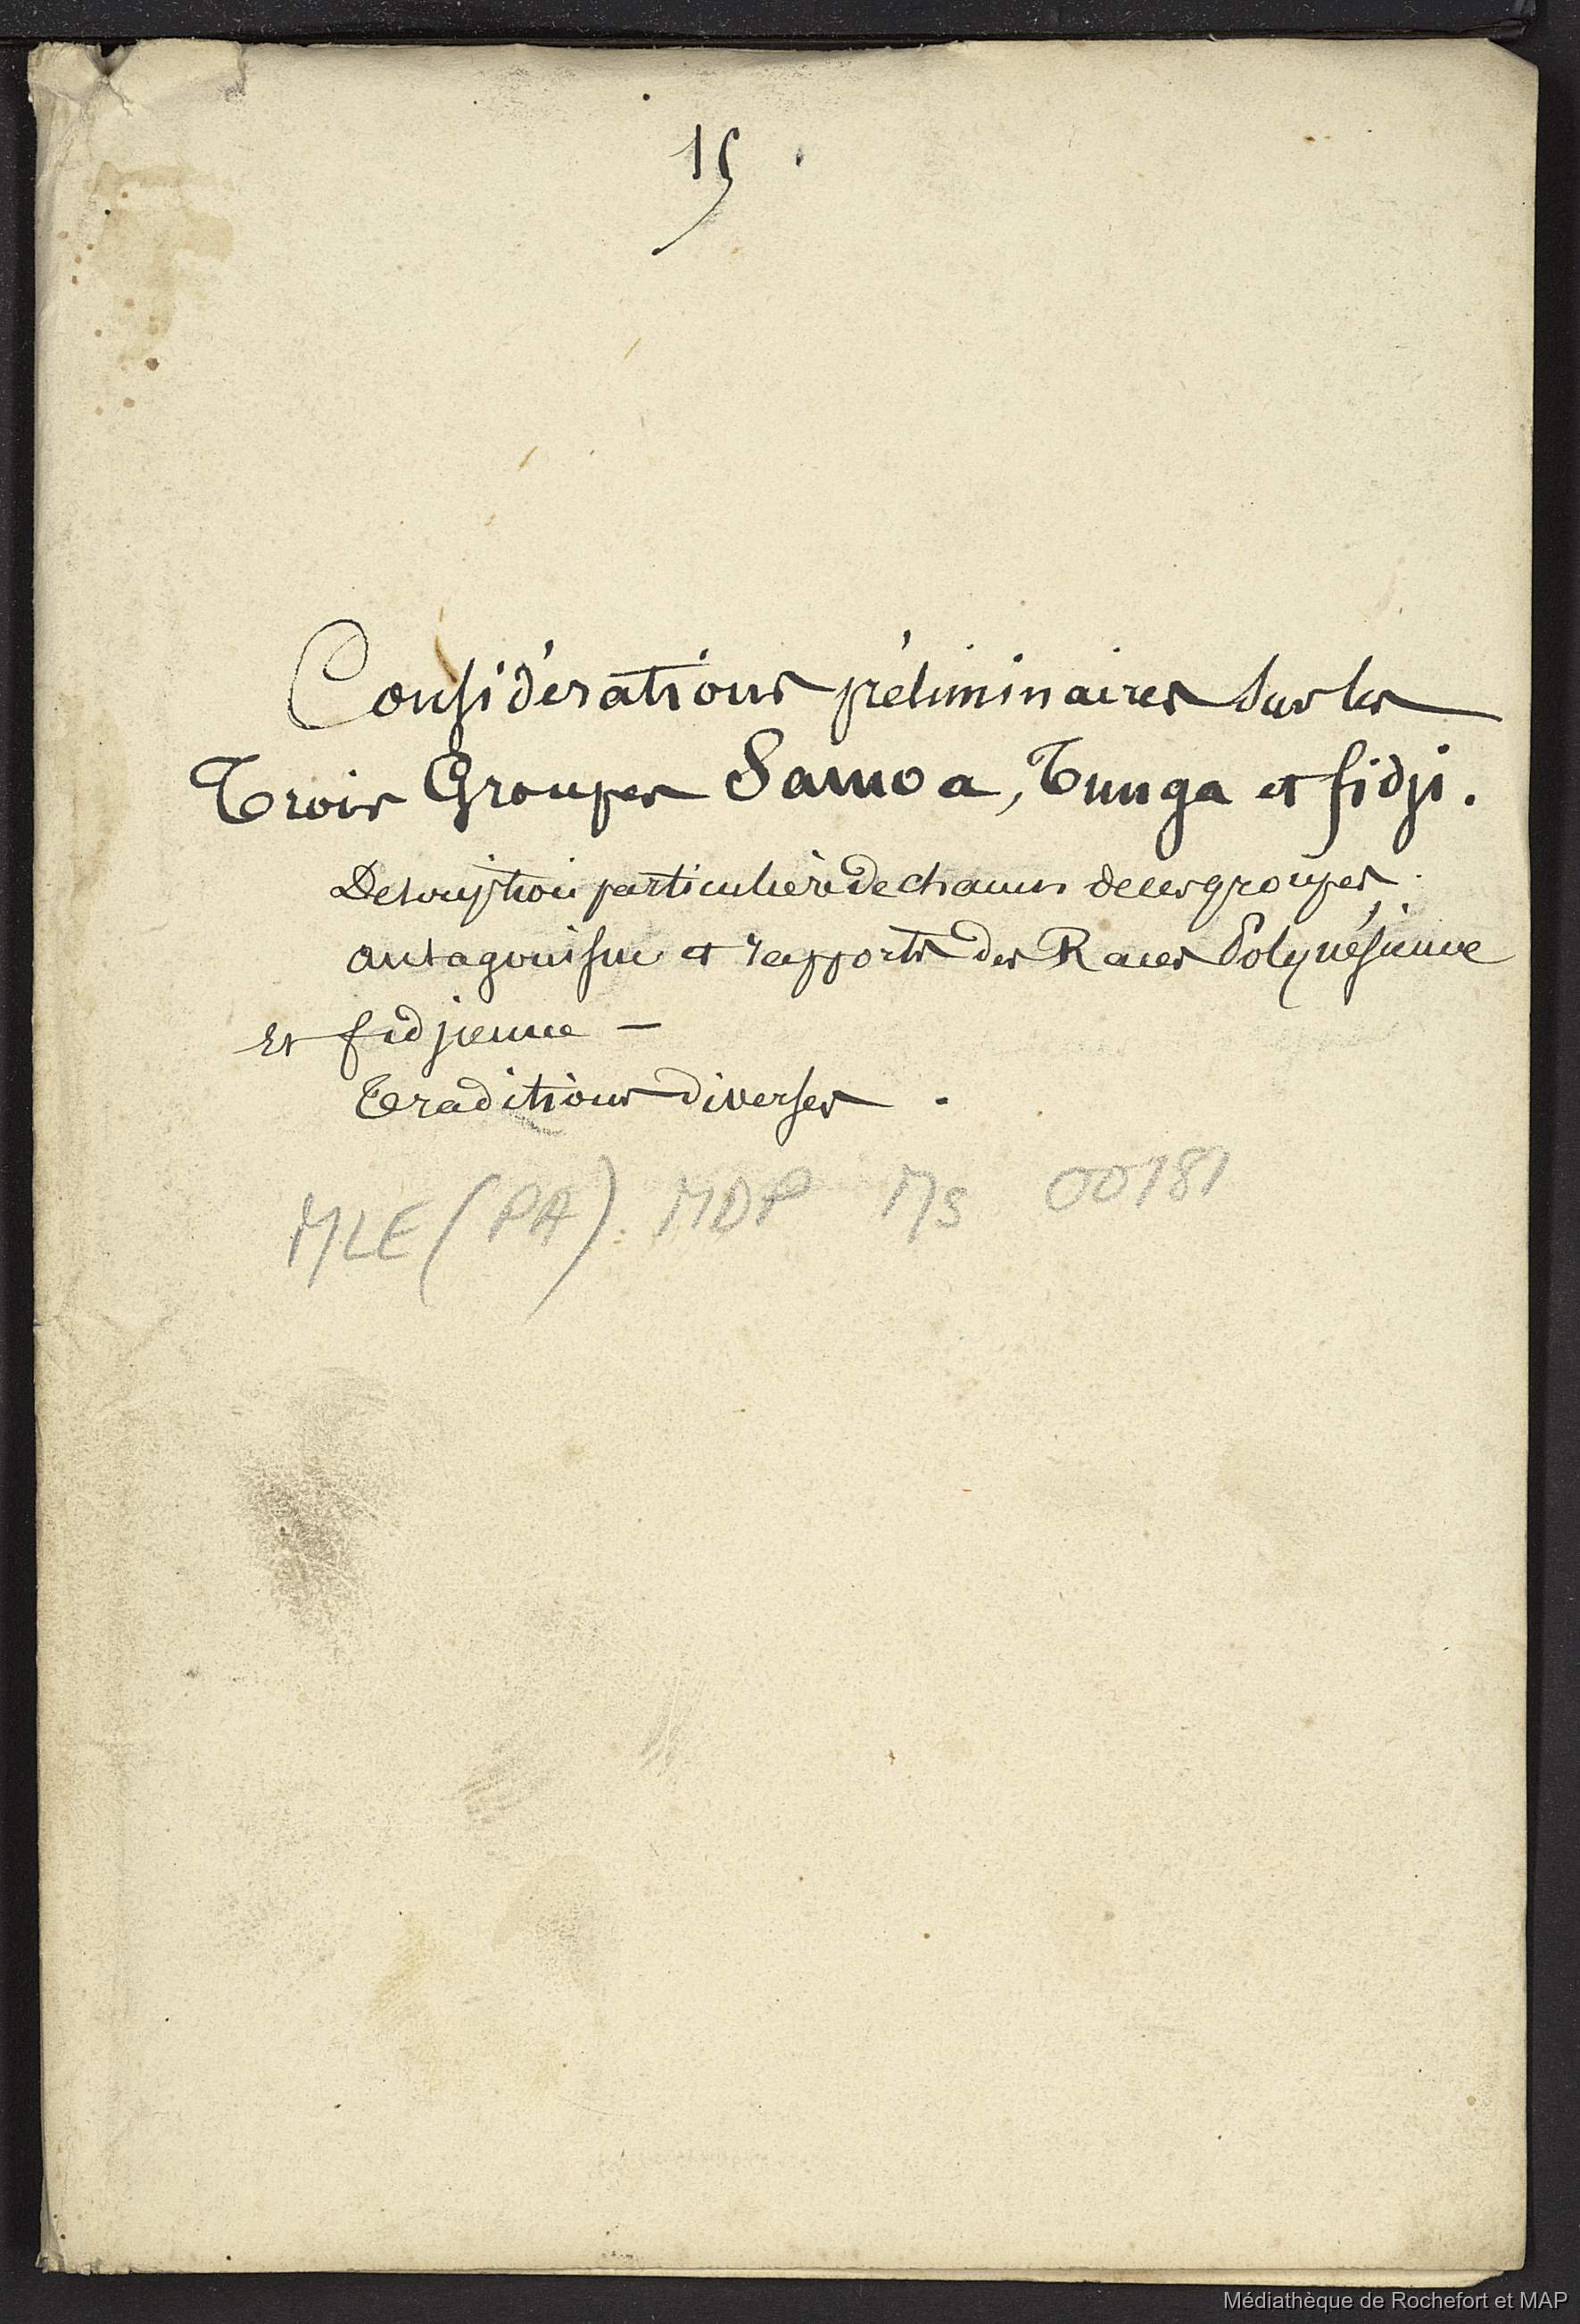 15
Considérations préliminaires sur les
Trois Groupes Samoa, Tunga et fidji.
Description particulière de chacun de ces groupes.
antagonisme et rapports des Races Polynésienne
Et fidjienne —
Traditions diverses.
MLE (PA). MDP Ms 00181
Médiathèque de Rochefort et MAP